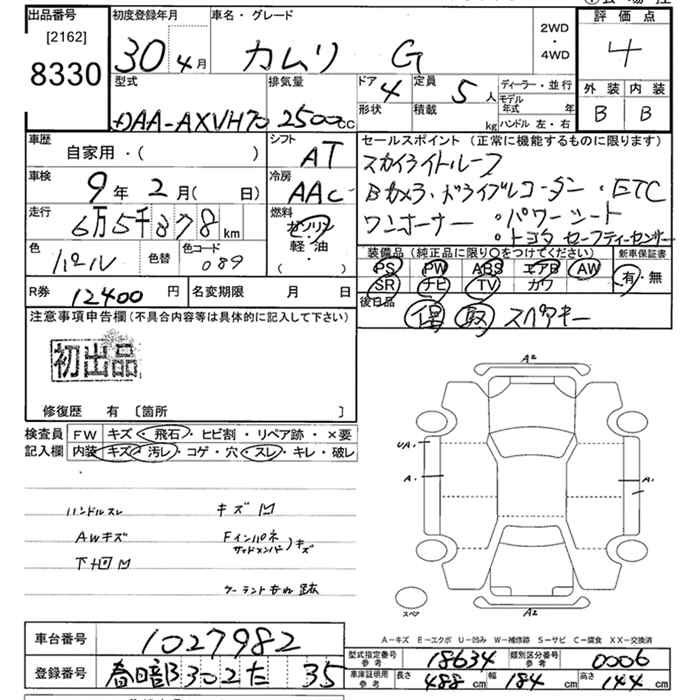 出品番号 初度登録年月 車名・グレード 2WD 評価点
[2162] 30年4月 カムリ G 4WD 4
8330
型式 排気量 ドア 4 定員 5人 ディーラー・並行 外装 内装
DAA-AXVH70 2500cc 形状 積載 kg モデル年式 年 B B
ハンドル 左・右
車歴 シフト セールスポイント (正常に機能するものに限ります)
自家用・( ) AT スカイライトルーフ
車検 冷房 Bカメラ・ドライブレコーダー・ETC
9年2月( 日) AAC ワンオーナー ・パワーシート
走行 燃料 ・トヨタ セーフティーセンサー
6万5千378km ガソリン
色 色替 色コード 軽・油 装備品 (純正品に限り○をつけてください) 新車保証書
パール 089 ・( ) PS PW ABS エアB AW 有・無
R券 12400円 名変期限 月 日 SR ナビ TV カワ
後日品
注意事項申告欄 (不具合内容等は具体的に記入して下さい) 保 取 スペアキー
初出品
修復歴 有 〔箇所 〕
検査員 FW キズ・飛石・ヒビ割・リペア跡・×要
記入欄 内装 キズ・汚レ・コゲ・穴・スレ・キレ・破レ
A2
UA・
A・ A・
ハンドルスレ キズ凹
AWキズ Fインパネ
サイドメンバー)キズ
下回凹
スペア
A2
A-キズ E-エクボ U-凹み W-補修跡 S-サビ C-腐食 XX-交換済
車台番号 1027982 型式指定番号 参考 18634 類別区分番号 参考 0006
登録番号 春日部 302 た 35 車庫証明用 参考 長さ 488cm 幅 184cm 高さ 144cm